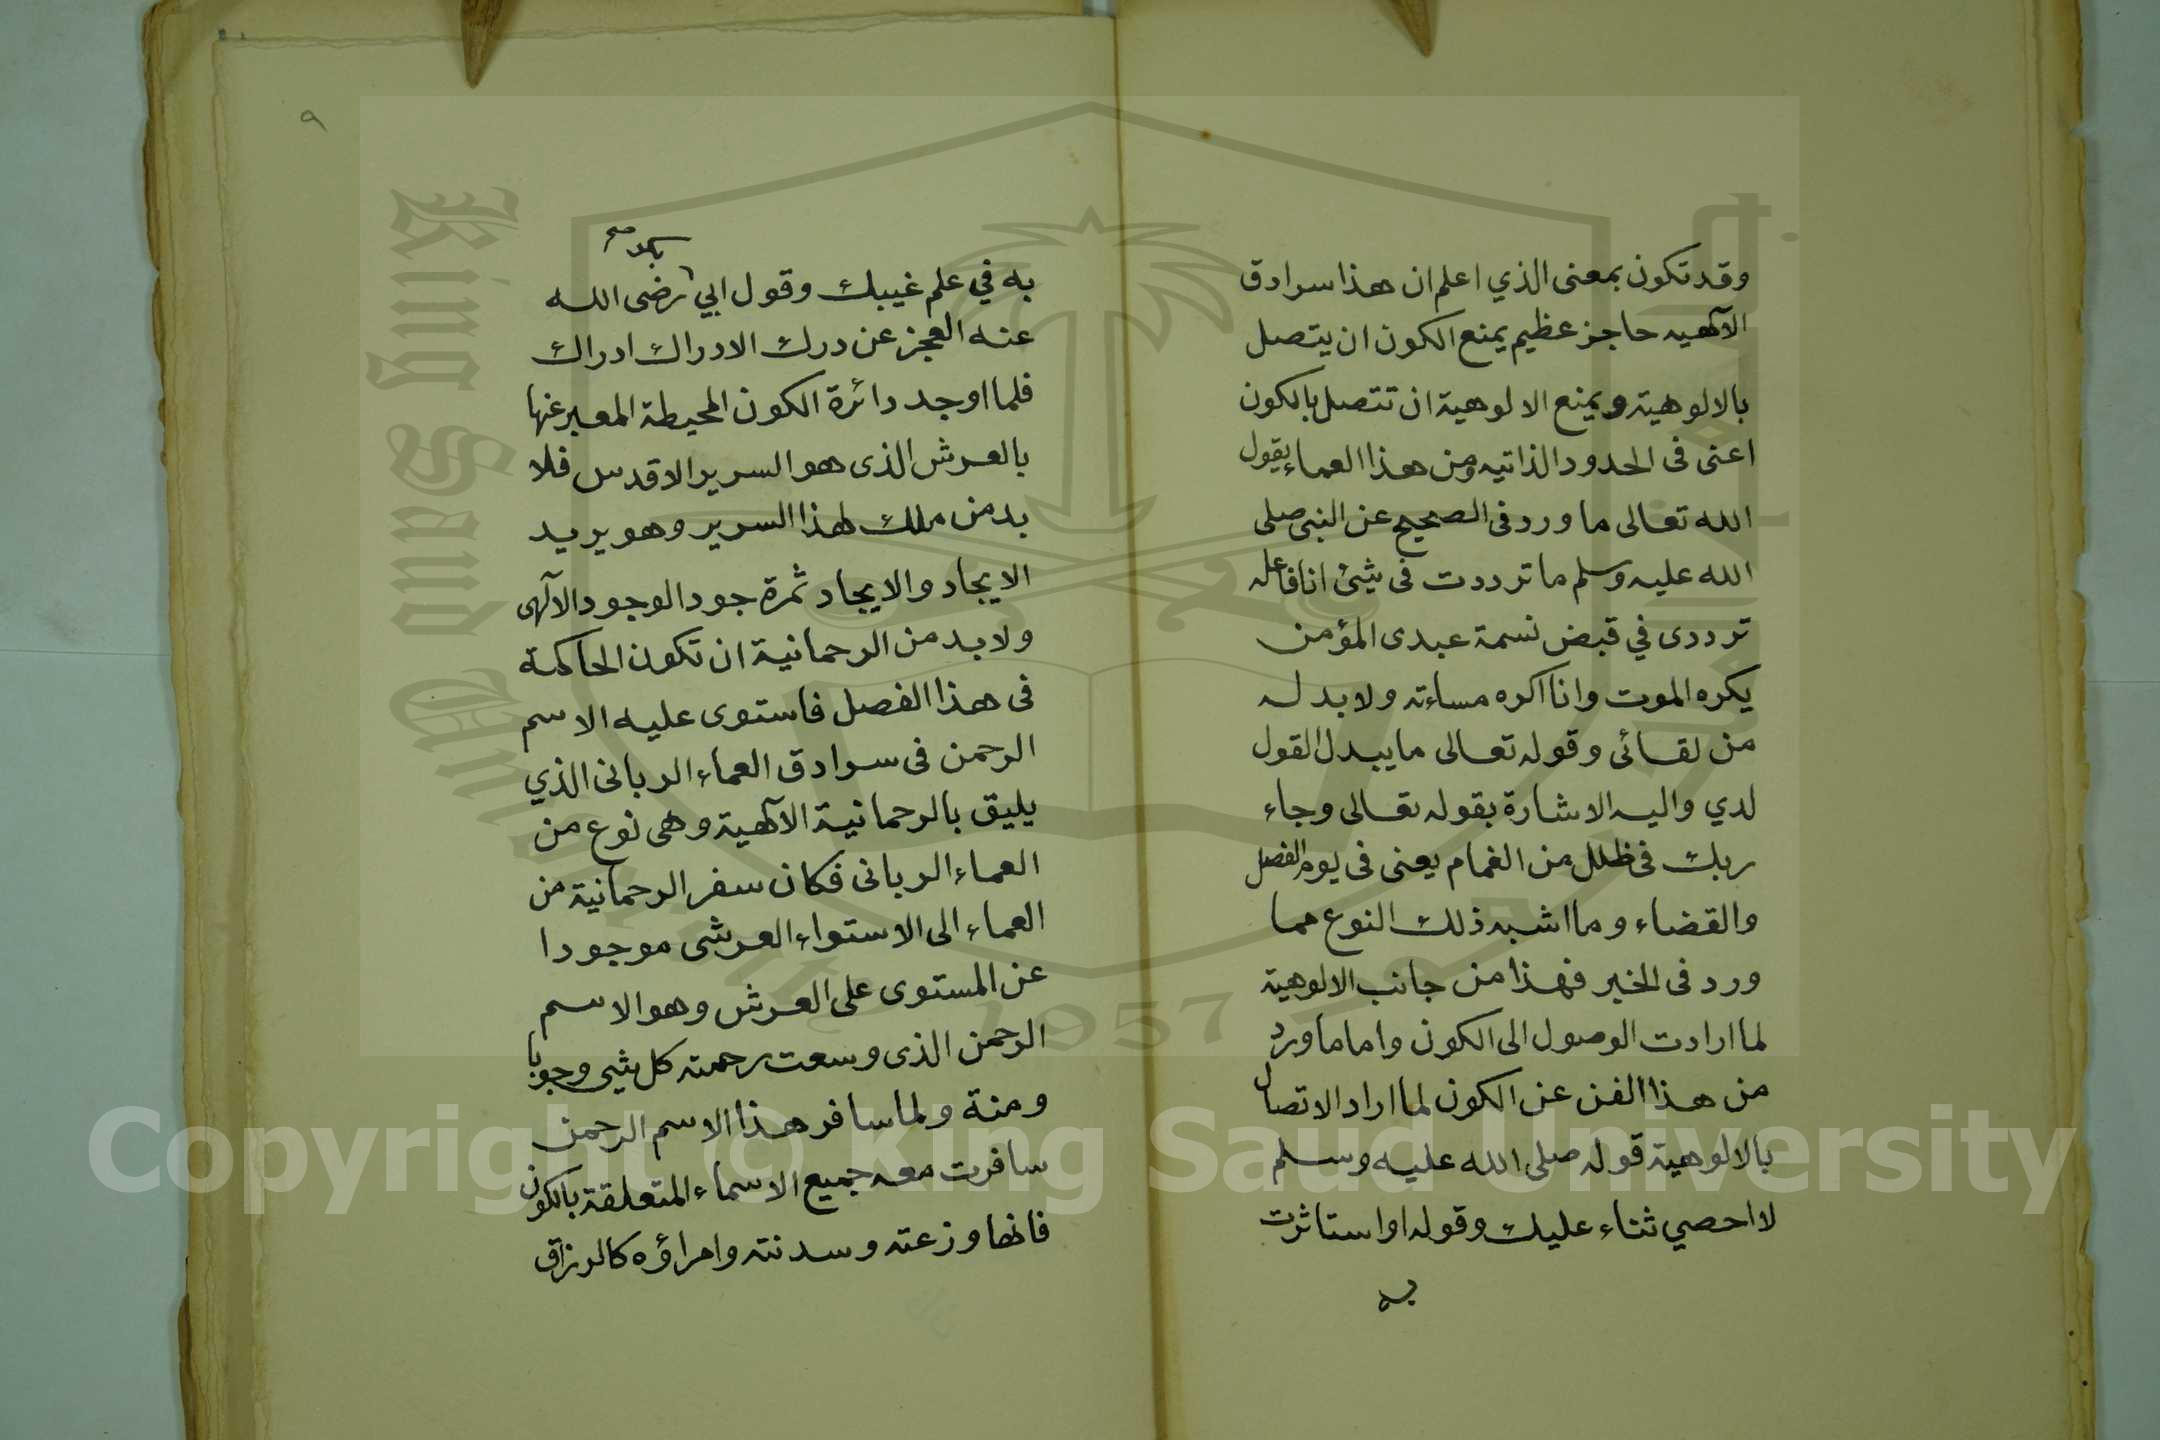 وقد تكون بمعنى الذي اعلم ان هذا سرادق
الآلهيه حاجز عظيم يمنع الكون ان يتصل
بالالوهية ويمنع الالوهية ان تتصل بالكون
اعنى فى الحدود الذاتيه ومن هذا العماء يقول
الله تعالى ما ورد فى الصحيح عن النبى صلى
الله عليه وسلم ما ترددت فى شئ انا فاعله
ترددى في قبض نسمة عبدى المؤمن
يكره الموت وانا اكره مساءته ولا بد له
من لقائى وقوله تعالى ما يبدل القول
لدي واليه الاشارة بقوله تعالى وجاء
ربك فى ظلل من الغمام يعنى فى يوم الفصل
والقضاء وما اشبه ذلك النوع مما
ورد فى الخبر فهذا من جانب الالوهية
لما ارادت الوصول الى الكون واما ما ورد
من هذا الفن عن الكون لما اراد الاتصال
بالالوهية قوله صلى الله عليه وسلم
لا احصي ثناء عليك وقوله او استاثرت
به
٩
بكر صح
به في علم غيبك وقول ابي رضى الله
عنه العجز عن درك الادراك ادراك
فلما اوجد دائرة الكون المحيطة المعبر عنها
بالعرش الذى هو السرير الاقدس فلا
بد من ملك لهذا السرير وهو يريد
الايجاد والايجاد ثمرة جود الوجود الآلهى
ولا بد من الرحمانية ان تكون الحاكمة
فى هذا الفصل فاستوى عليه الاسم
الرحمن فى سرادق العماء الربانى الذي
يليق بالرحمانية الآلهية وهى نوع من
العماء الربانى فكان سفر الرحمانية من
العماء الى الاستواء العرشى موجودا
عن المستوى على العرش وهو الاسم
الرحمن الذى وسعت رحمته كل شيى وجوبا
ومنة ولما سافر هذا الاسم الرحمن
سافرت معه جميع الاسماء المتعلقة بالكون
فانها وزعته وسدنته وامراؤه كالرزاق
King Saud University
1957
Copyright © King Saud University